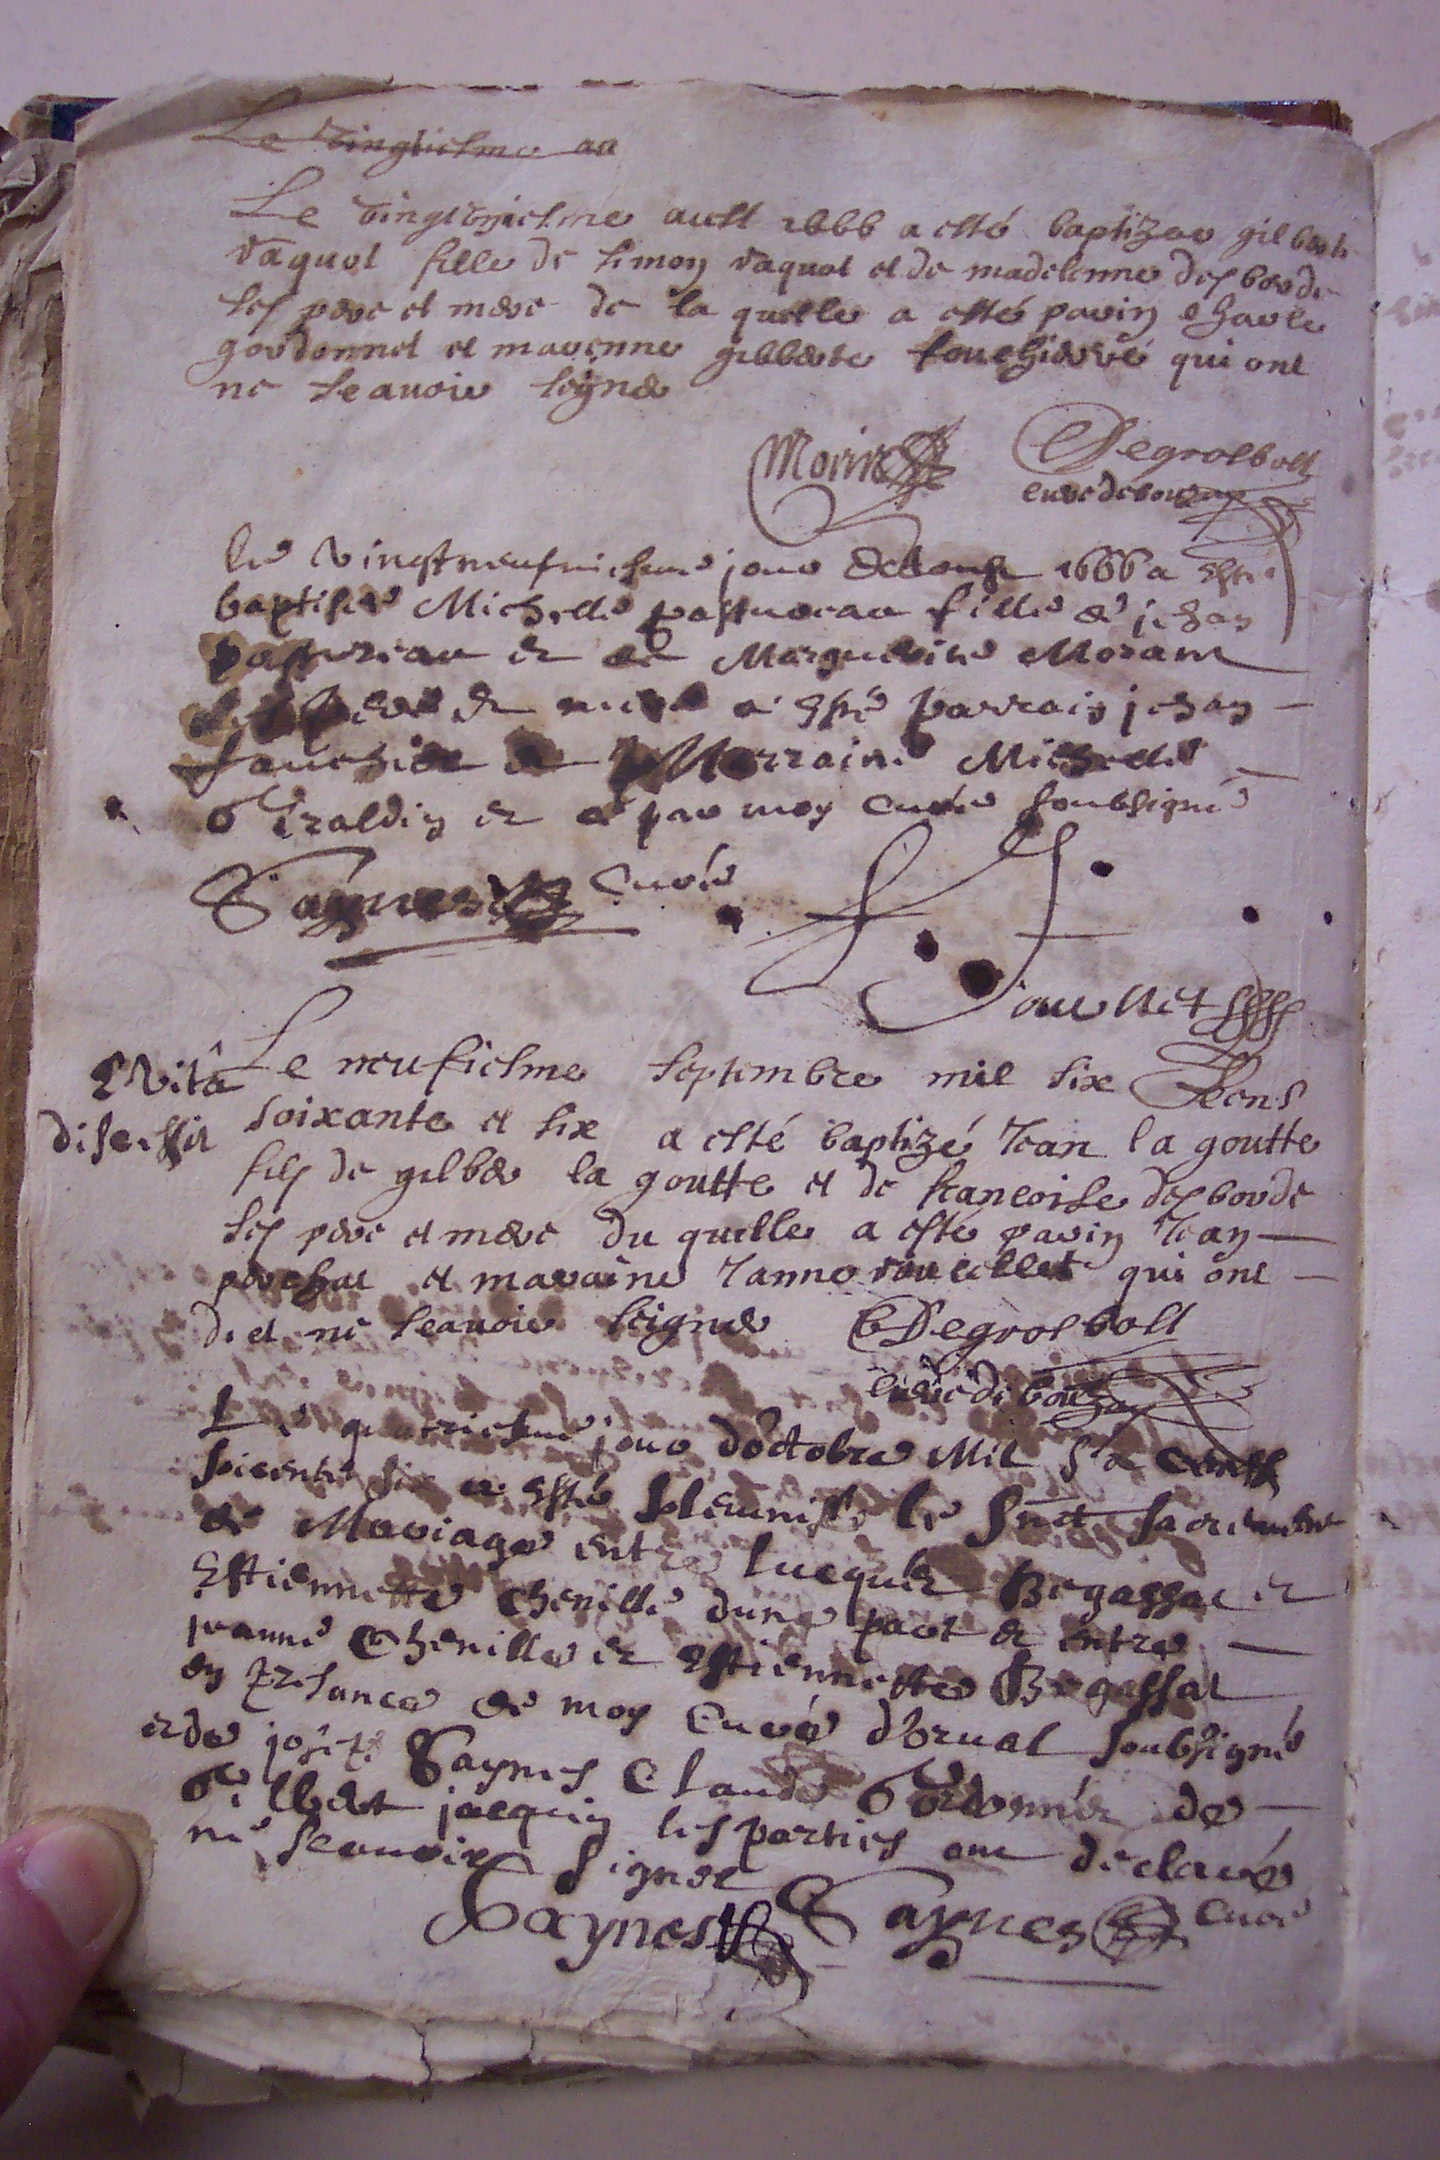 Le vingtiesme au
Le vingtuniesme aust 1666 a esté baptizee gilberte
vaquot fille de simon vaquot et de madelenne desborde
ses pere et mere de la quelle a esté parin charle
gordonnet et marenne gilberte fouchierre qui ont
ne sçavoir seigner
Morin Degrosbost
curé de bouzay
Le vingtneufviesme jour 1666 a esté
baptisée Michelle pastureau fille de jehan
pastureau et de Marguerite Morant
pere et mere a esté parrain jehan
fauchier et Marraine Michelle
Giraldin et ce par moy Curé soubsigné
Gaynes Curé
Jouuset
Le neufiesme septembre mil six Cens
Evita
discessit soixante et six a esté baptizé Jean la goutte
fils de gilber la goutte et de françoise desborde
ses pere et mere du quelle a esté parin Jean
perchat et maraine Janne rouellet qui ont
dict ne sçavoir seigner Degrosbost
curé de bouzay
Le quatriesme jour d'octobre Mil six Cents
soicente six a esté solemnisé le sainct sacrement
de Mariage entre lucquet Begassat et
Estiennette Chenille dune part et entre
jeanne Chenille et Estiennette Begassat
en presance de moy Curé d'orual soubsigné
et de Gaynes Claude Gordonnier de
Gilbert jacquin les parties ont declaré
ne scauoir signer
Gaynes Gaynes Curé